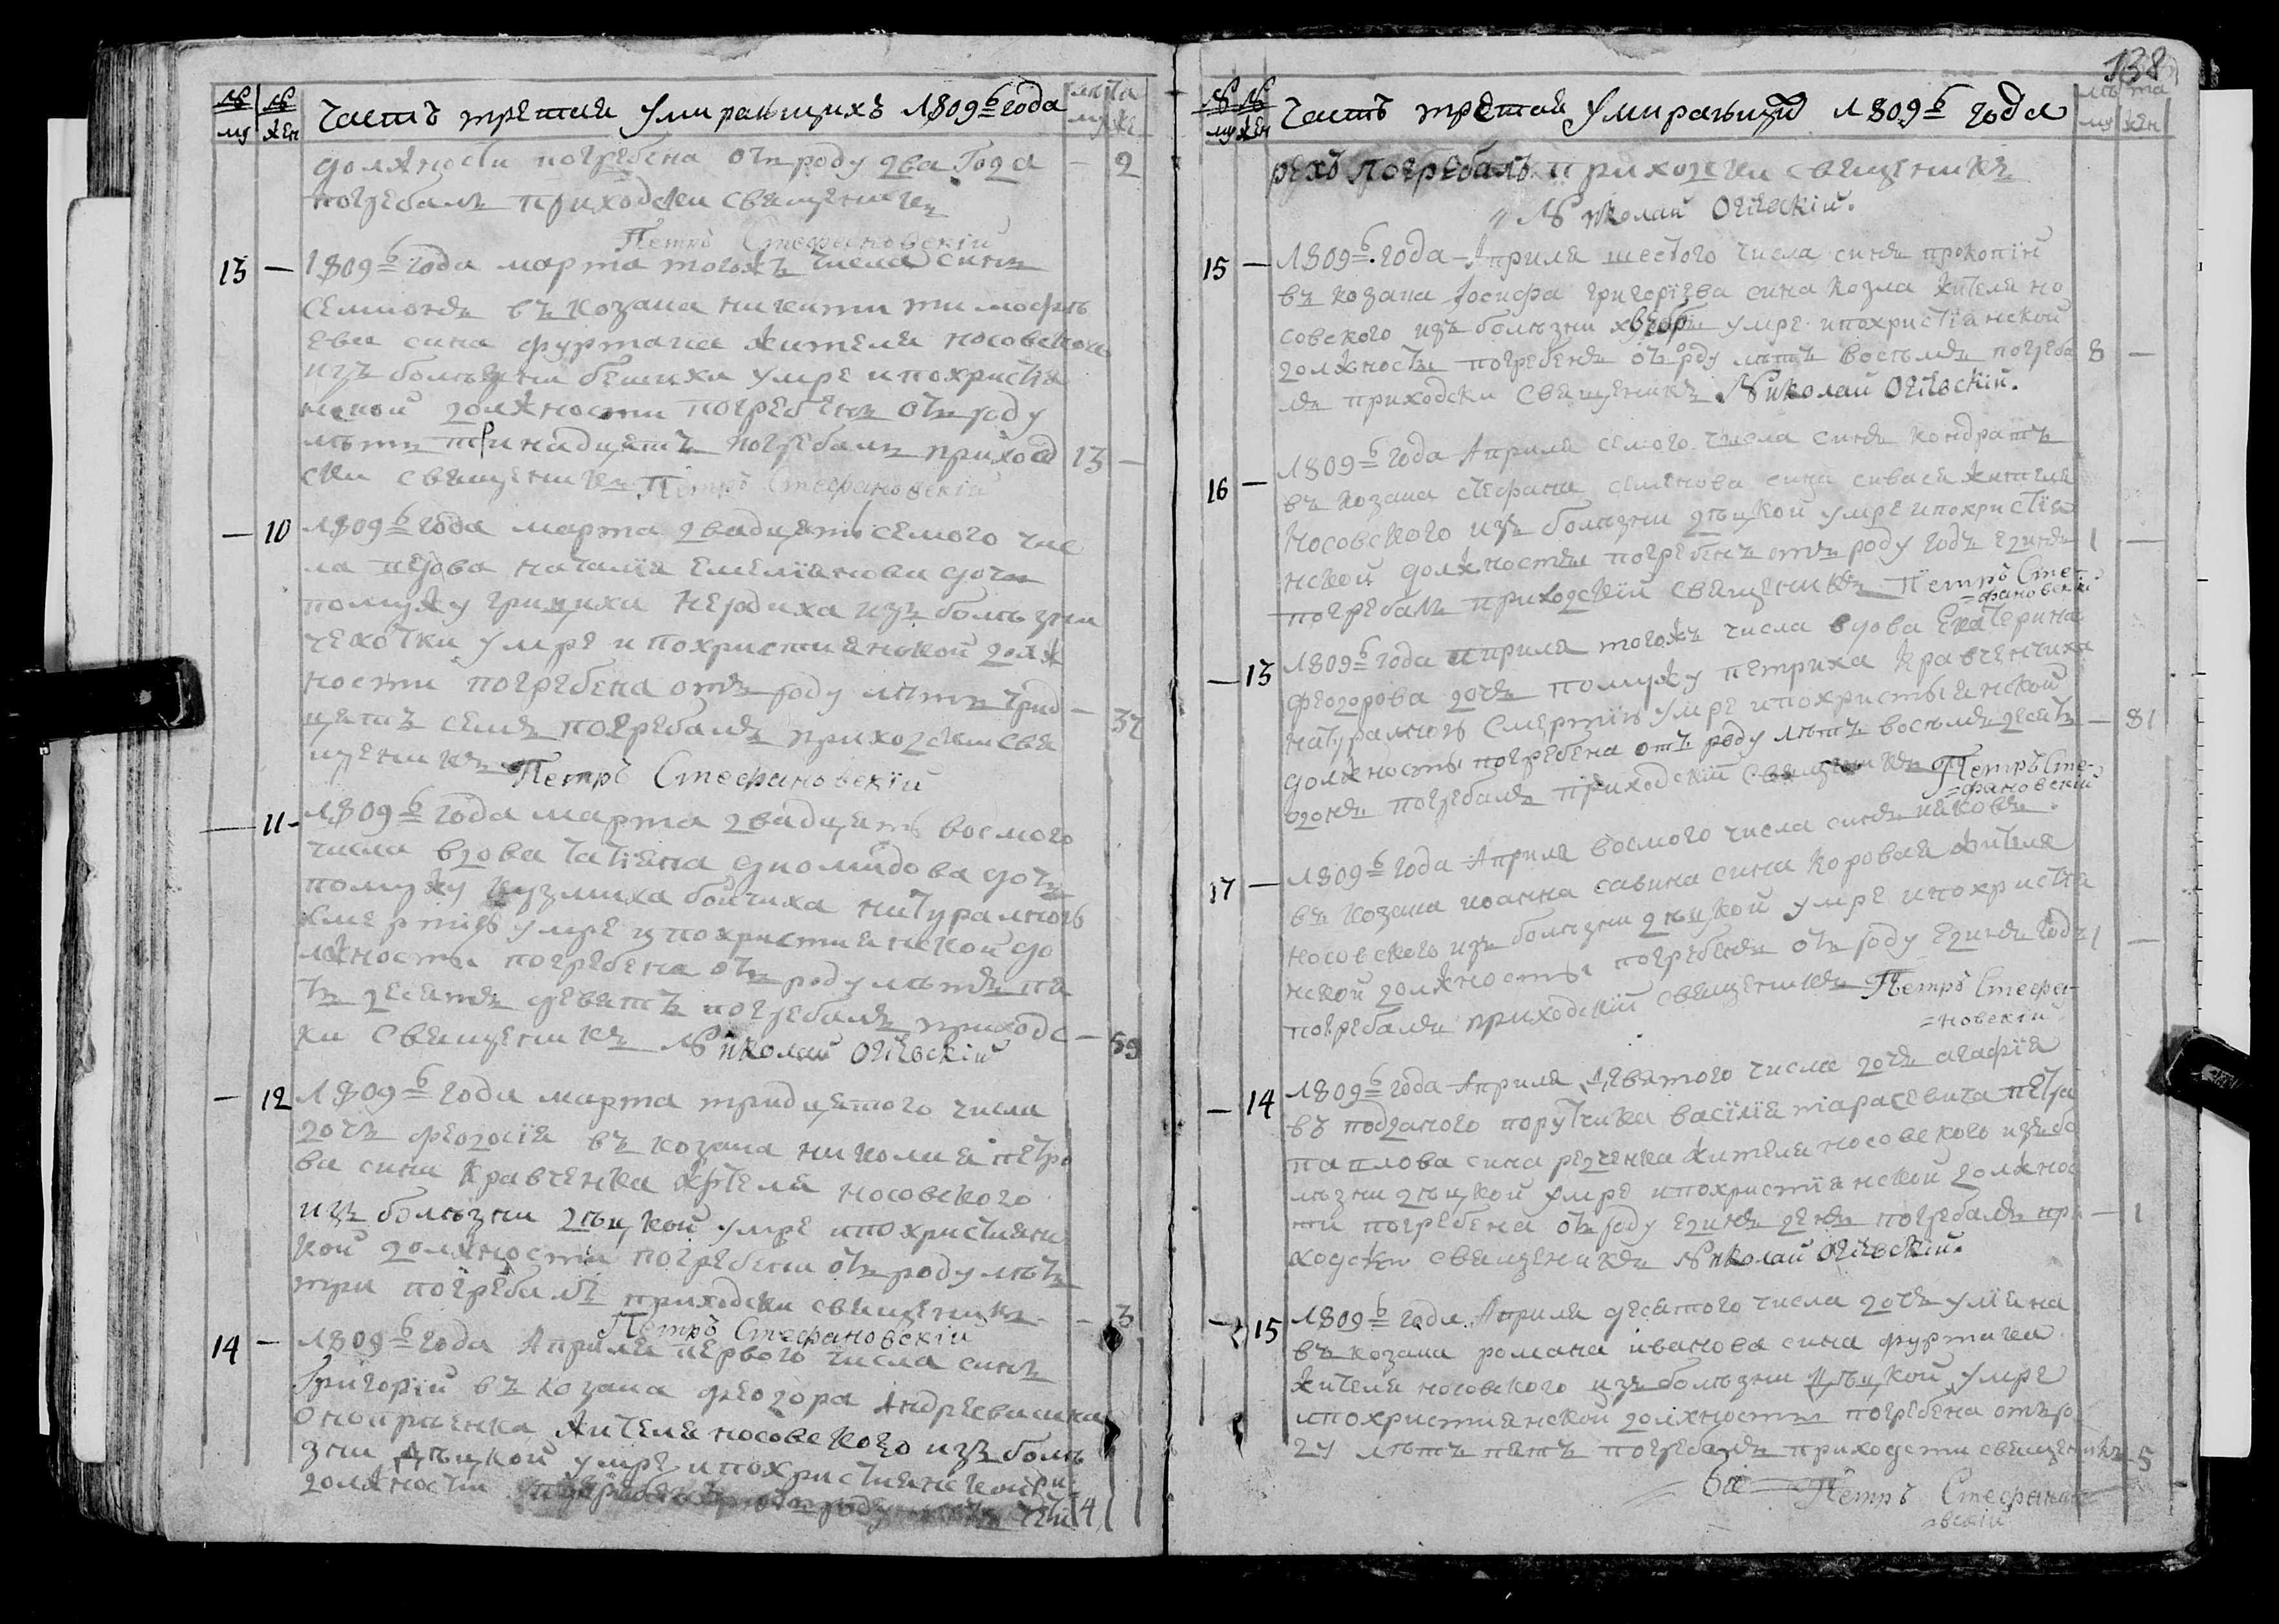 № № Часть третая Умирающихъ 1809го года лѣта
му жен му же
должности погребена отъ роду два Года — 2
погребалъ приходски священикъ
Петръ Стефановскій
13 — 1809го года марта тогожъ числа синъ
Семионъ въ козака никити тимофѣ
ева сина фуртака жителя носовского
изъ болѣзни бешихи умре и похристия
нской должности погребенъ отъ роду
лѣтъ тринадцять погребалъ приход 13 —
ски священикъ Петръ Стефановскій
— 10 1809го года марта двадцять семого чис
ла наталія Емеліянова дочъ
помужу грициха изъ болѣзни
чехотки умре и похристиянской долж
ности погребена отъ роду лѣтъ трид — 37
цять семъ погребалъ приходски свя
щеникъ Петръ Стефановскій
— 11 1809го года марта двадцять восмого
числа вдова татіяна диомидова дочъ
помужу кузмиха бойчиха натуралною
смертию умре и похристиянской до
лжности погребена отъ роду лѣтъ пя
тъ десятъ девять погребалъ приходс — 59
ки священикъ Николай Огіевскій
— 12 1809го года марта тридцятого числа
дочъ феодосія въ козака николая петро
ва сина кравченка жителя носовского
изъ болѣзни дѣцкой умре и похристиянс
кой должности погребена отъ роду лѣтъ
три погребалъ приходски священикъ — 3
Петръ Стефановскій
14 — 1809го года Априля первого числа синъ
Григорій въ козака феодора Андреева сина
Оноприенка жителя носовского изъ болѣ
зни дѣцкой умре и похристиянской
должности роду 4
138
№ № Часть третая Умирающихъ 1809го года лѣта
му жен му жен
рехъ погребалъ приходски священикъ
Николай Огіевскій.
15 — 1809го года Априля шестого числа синъ прокопій
въ козака Іосифа григоріева сина козла жителя но
совского изъ болѣзни умре и похристіянской
должности погребенъ отъ роду лѣтъ восъмъ погреба 8 —
лъ приходски Священикъ Николай Огіевскій.
16 — 1809го года Априля семого числа синъ кондратъ
въ козака стефана семенова сина сивася жителя
Носовского изъ болѣзни дѣцкой умре и похристія
нской должности погребенъ отъ роду годъ единъ 1 —
погребалъ приходскій священикъ Петръ Сте-
=фановскій
— 13 1809го года априля тогожъ числа вдова Екатерина
феодорова дочъ помужу петриха Кравченчиха
натуралною Смертію умре и похристыянской
должносты погребена отъ роду лѣтъ восъмъдесятъ — 81
одонъ погребалъ приходскій священикъ Петръ Сте-
=фановскій
17 — 1809го года Априля восмого числа синъ иаковъ
въ козака иоанна савина сина коровая жителя
носовского изъ болѣзни дѣцкой умре и похристія
нской должносты погребенъ отъ роду единъ годъ 1 —
погребалъ приходскій священикъ Петръ Стефа-
=новскій
— 14 1809го года Априля девятого числа дочъ агафія
въ подданого порутчика василія тарасевича петра
павлова сина редченка жителя носовского изъ бо
лѣзни дѣцкой умре и похристіянской должнос
ти погребена отъ роду единъ денъ погребалъ при — 1
ходски священикъ Николай Огіевскій.
— 15 1809го года Априля десятого числа дочъ уліяна
въ козака романа иванова сина фуртака
жителя носовского изъ болѣзни дѣцкой умре
и похристиянской должносты погребена отъ ро
ду лѣтъ пять погребалъ приходски священикъ — 5
Петръ Стефано-
=вскій